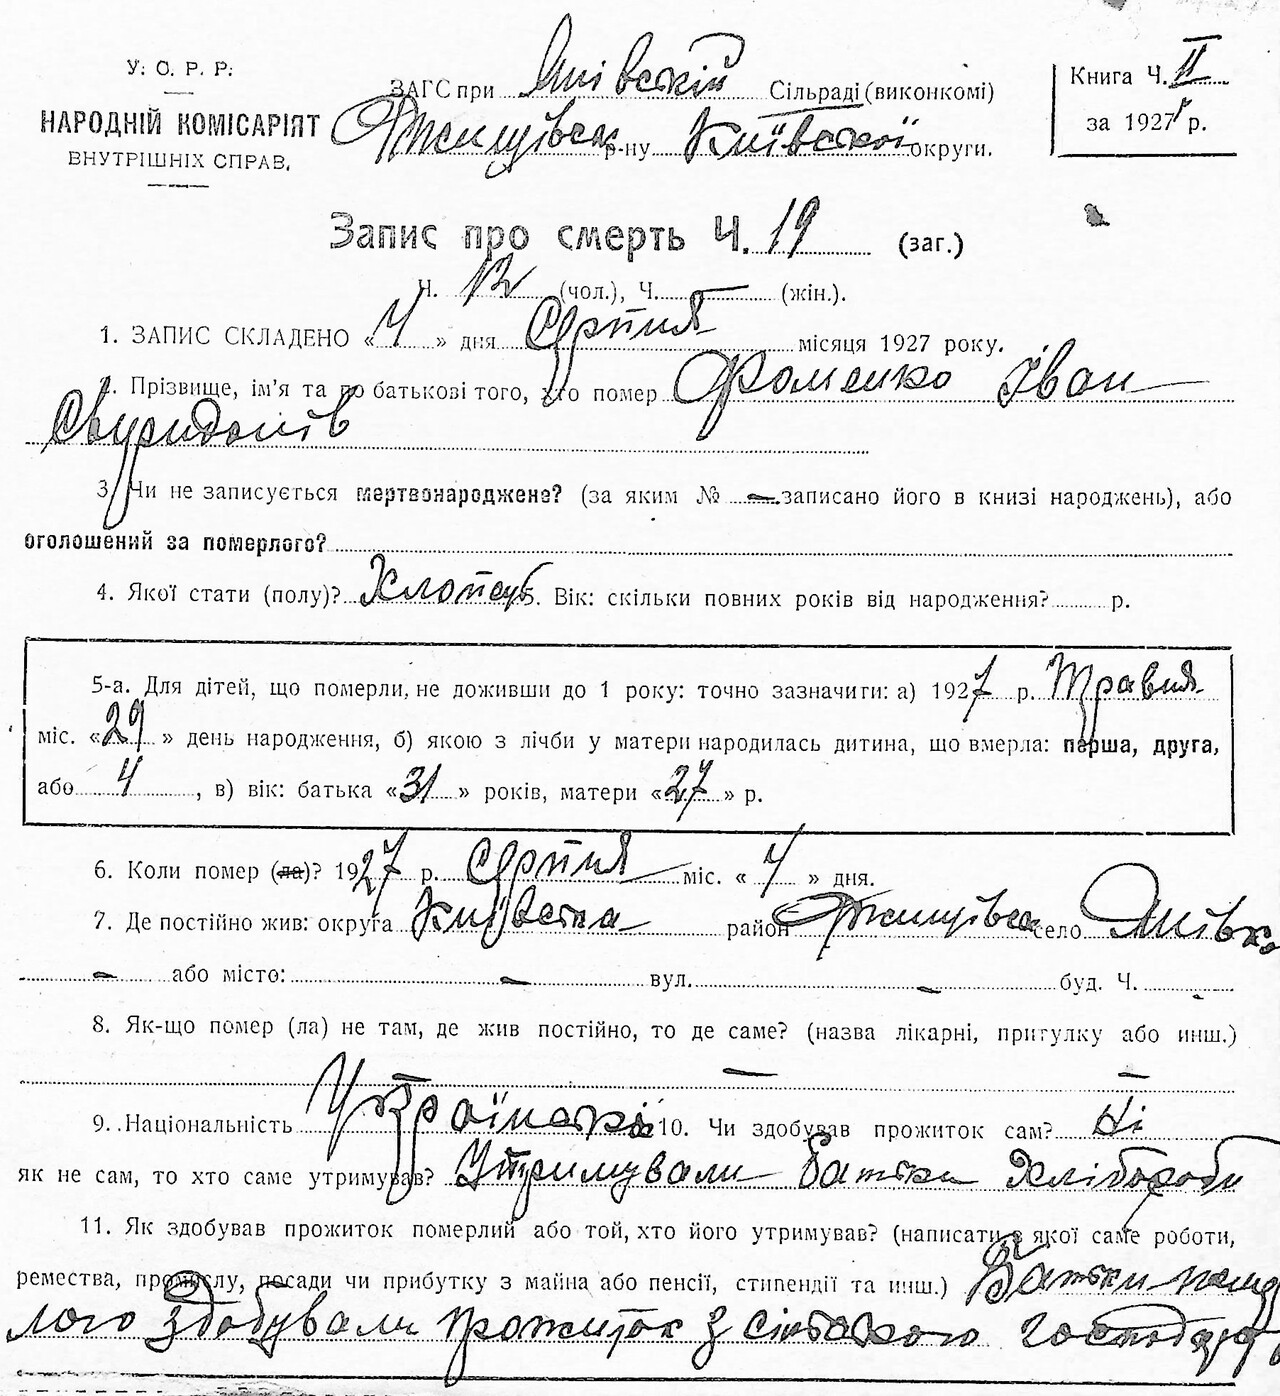 У. С. Р. Р.
НАРОДНІЙ КОМІСАРІЯТ
ВНУТРІШНІХ СПРАВ.
ЗАГС при Янівській Сільраді (виконкомі)
Ржищівськ р-ну Київської округи.
Книга Ч. II
за 1927 р.
Запис про смерть Ч. 19 (заг.)
Ч. 12 (чол.), Ч. — (жін.).
1. ЗАПИС СКЛАДЕНО « 4 » дня Серпня місяця 1927 року.
2. Прізвище, ім'я та по батькові того, хто помер Фоменко Іван
Свиридонів
3. Чи не записується мертвонароджене? (за яким № — записано його в книзі народжень), або
оголошений за померлого?
4. Якої стати (полу)? Хлопець 5. Вік: скільки повних років від народження? р.
5-а. Для дітей, що померли, не доживши до 1 року: точно зазначити: а) 1927 р. Травня
міс. « 29 » день народження, б) якою з лічби у матери народилась дитина, що вмерла: перша, друга,
або 4 , в) вік: батька « 31 » років, матери « 27 » р.
6. Коли помер (ла)? 1927 р. Серпня міс. « 4 » дня.
7. Де постійно жив: округа Київська район Ржищівськ село Янівка
— або місто: — вул. — буд. Ч. -
8. Як-що помер (ла) не там, де жив постійно, то де саме? (назва лікарні, притулку або инш.)
— — —
9. Національність Українські 10. Чи здобував прожиток сам? Ні
як не сам, то хто саме утримував? Утримували батьки Хлібороби
11. Як здобував прожиток померлий або той, хто його утримував? (написати з якої саме роботи,
ремества, промислу, посади чи прибутку з майна або пенсії, стипендії та инш.) Батьки
здобували прожиток з сільського господар